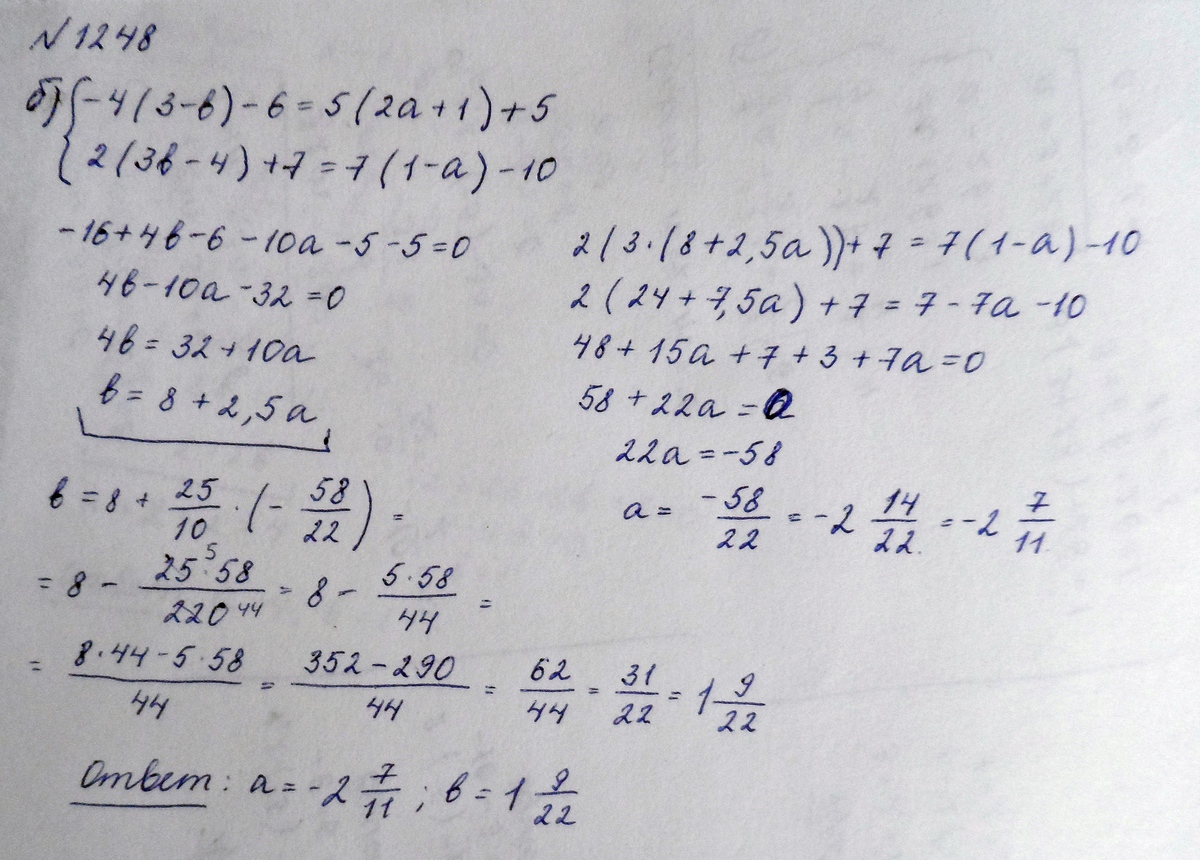 №1248
б) { -4(3-в)-6=5(2а+1)+5
2(3в-4)+7=7(1-а)-10
-16+4в-6-10а-5-5=0
4в-10а-32=0
4в=32+10а
в=8+2,5а
2(3·(8+2,5а))+7=7(1-а)-10
2(24+7,5а)+7=7-7а-10
48+15а+7+3+7а=0
58+22а=0
22а=-58
а= -58/22 = -2 14/22 = -2 7/11
в=8+ 25/10 ·(- 58/22) =
=8- 25 5·58/220 44 = 8- 5·58/44 =
= 8·44-5·58/44 = 352-290/44 = 62/44 = 31/22 = 1 9/22
Ответ: а=-2 7/11; в=1 9/22